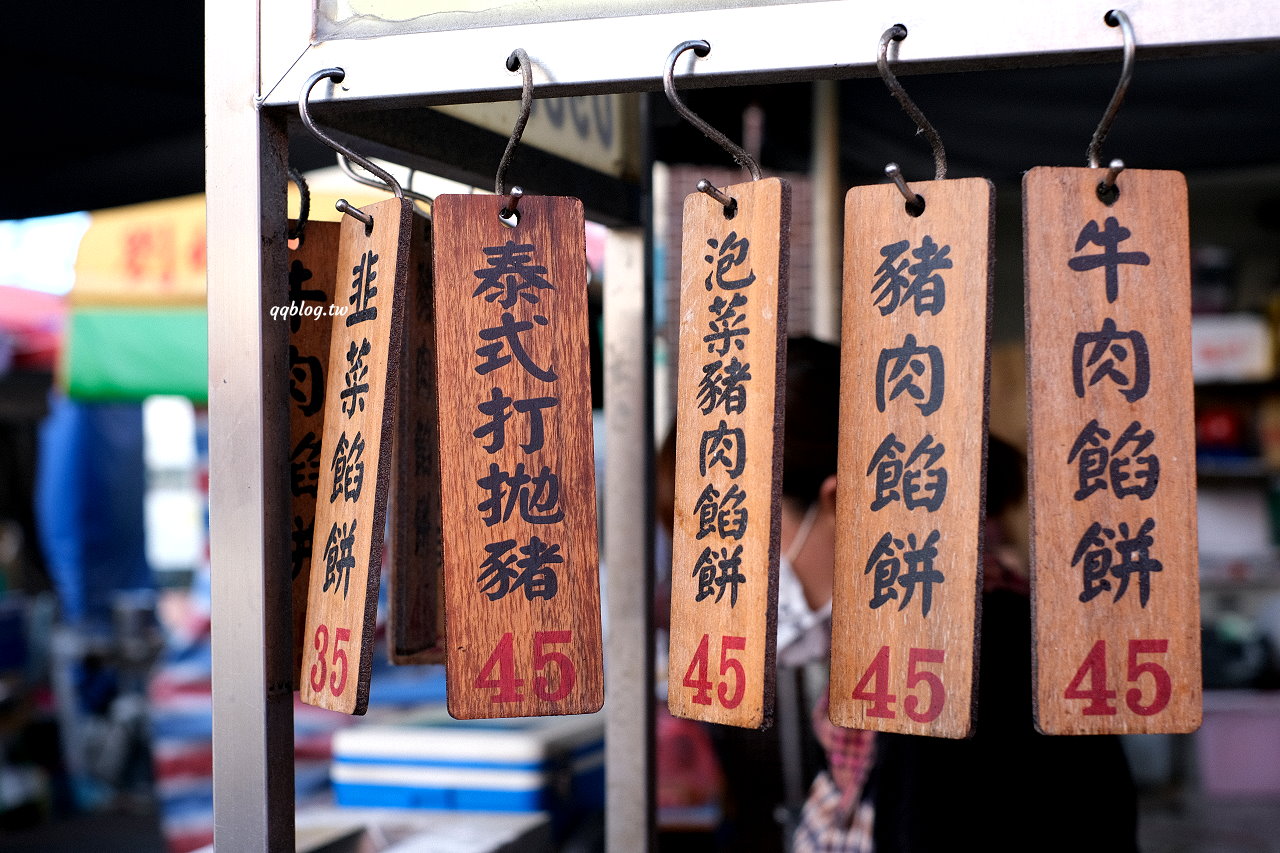 韭菜餡餅
35
泰式打拋豬
45
泡菜豬肉餡餅
45
豬肉餡餅
45
牛肉餡餅
45
qqblog.tw